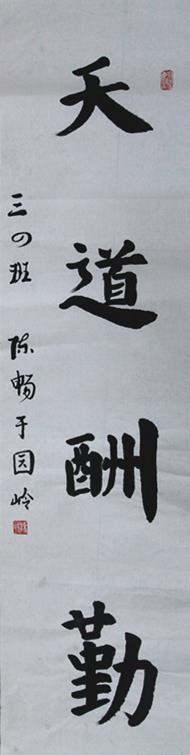 天道酬勤
三の班 陈畅于园岭